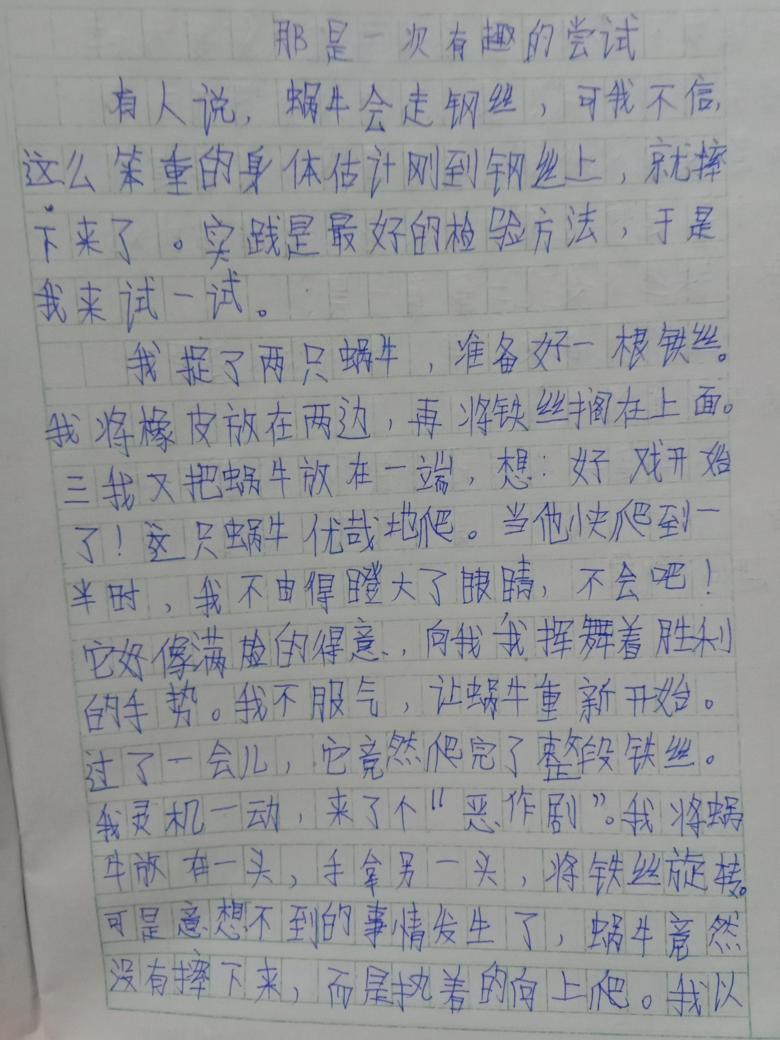 那是一次有趣的尝试
有人说，蜗牛会走钢丝，可我不信，
这么笨重的身体估计刚到钢丝上，就摔
下来了。实践是最好的检验方法，于是
我来试一试。
我捉了两只蜗牛，准备好一根铁丝。
我将橡皮放在两边，再将铁丝搁在上面。
三我又把蜗牛放在一端，想：好戏开始
了！这只蜗牛优哉地爬。当他快爬到一
半时，我不由得瞪大了眼睛，不会吧！
它好像满脸的得意，向我我挥舞着胜利
的手势。我不服气，让蜗牛重新开始。
过了一会儿，它竟然爬完了整段铁丝。
我灵机一动，来了个“恶作剧”。我将蜗
牛放在一头，手拿另一头，将铁丝旋转。
可是意想不到的事情发生了，蜗牛竟然
没有摔下来，而是执着的向上爬。我以